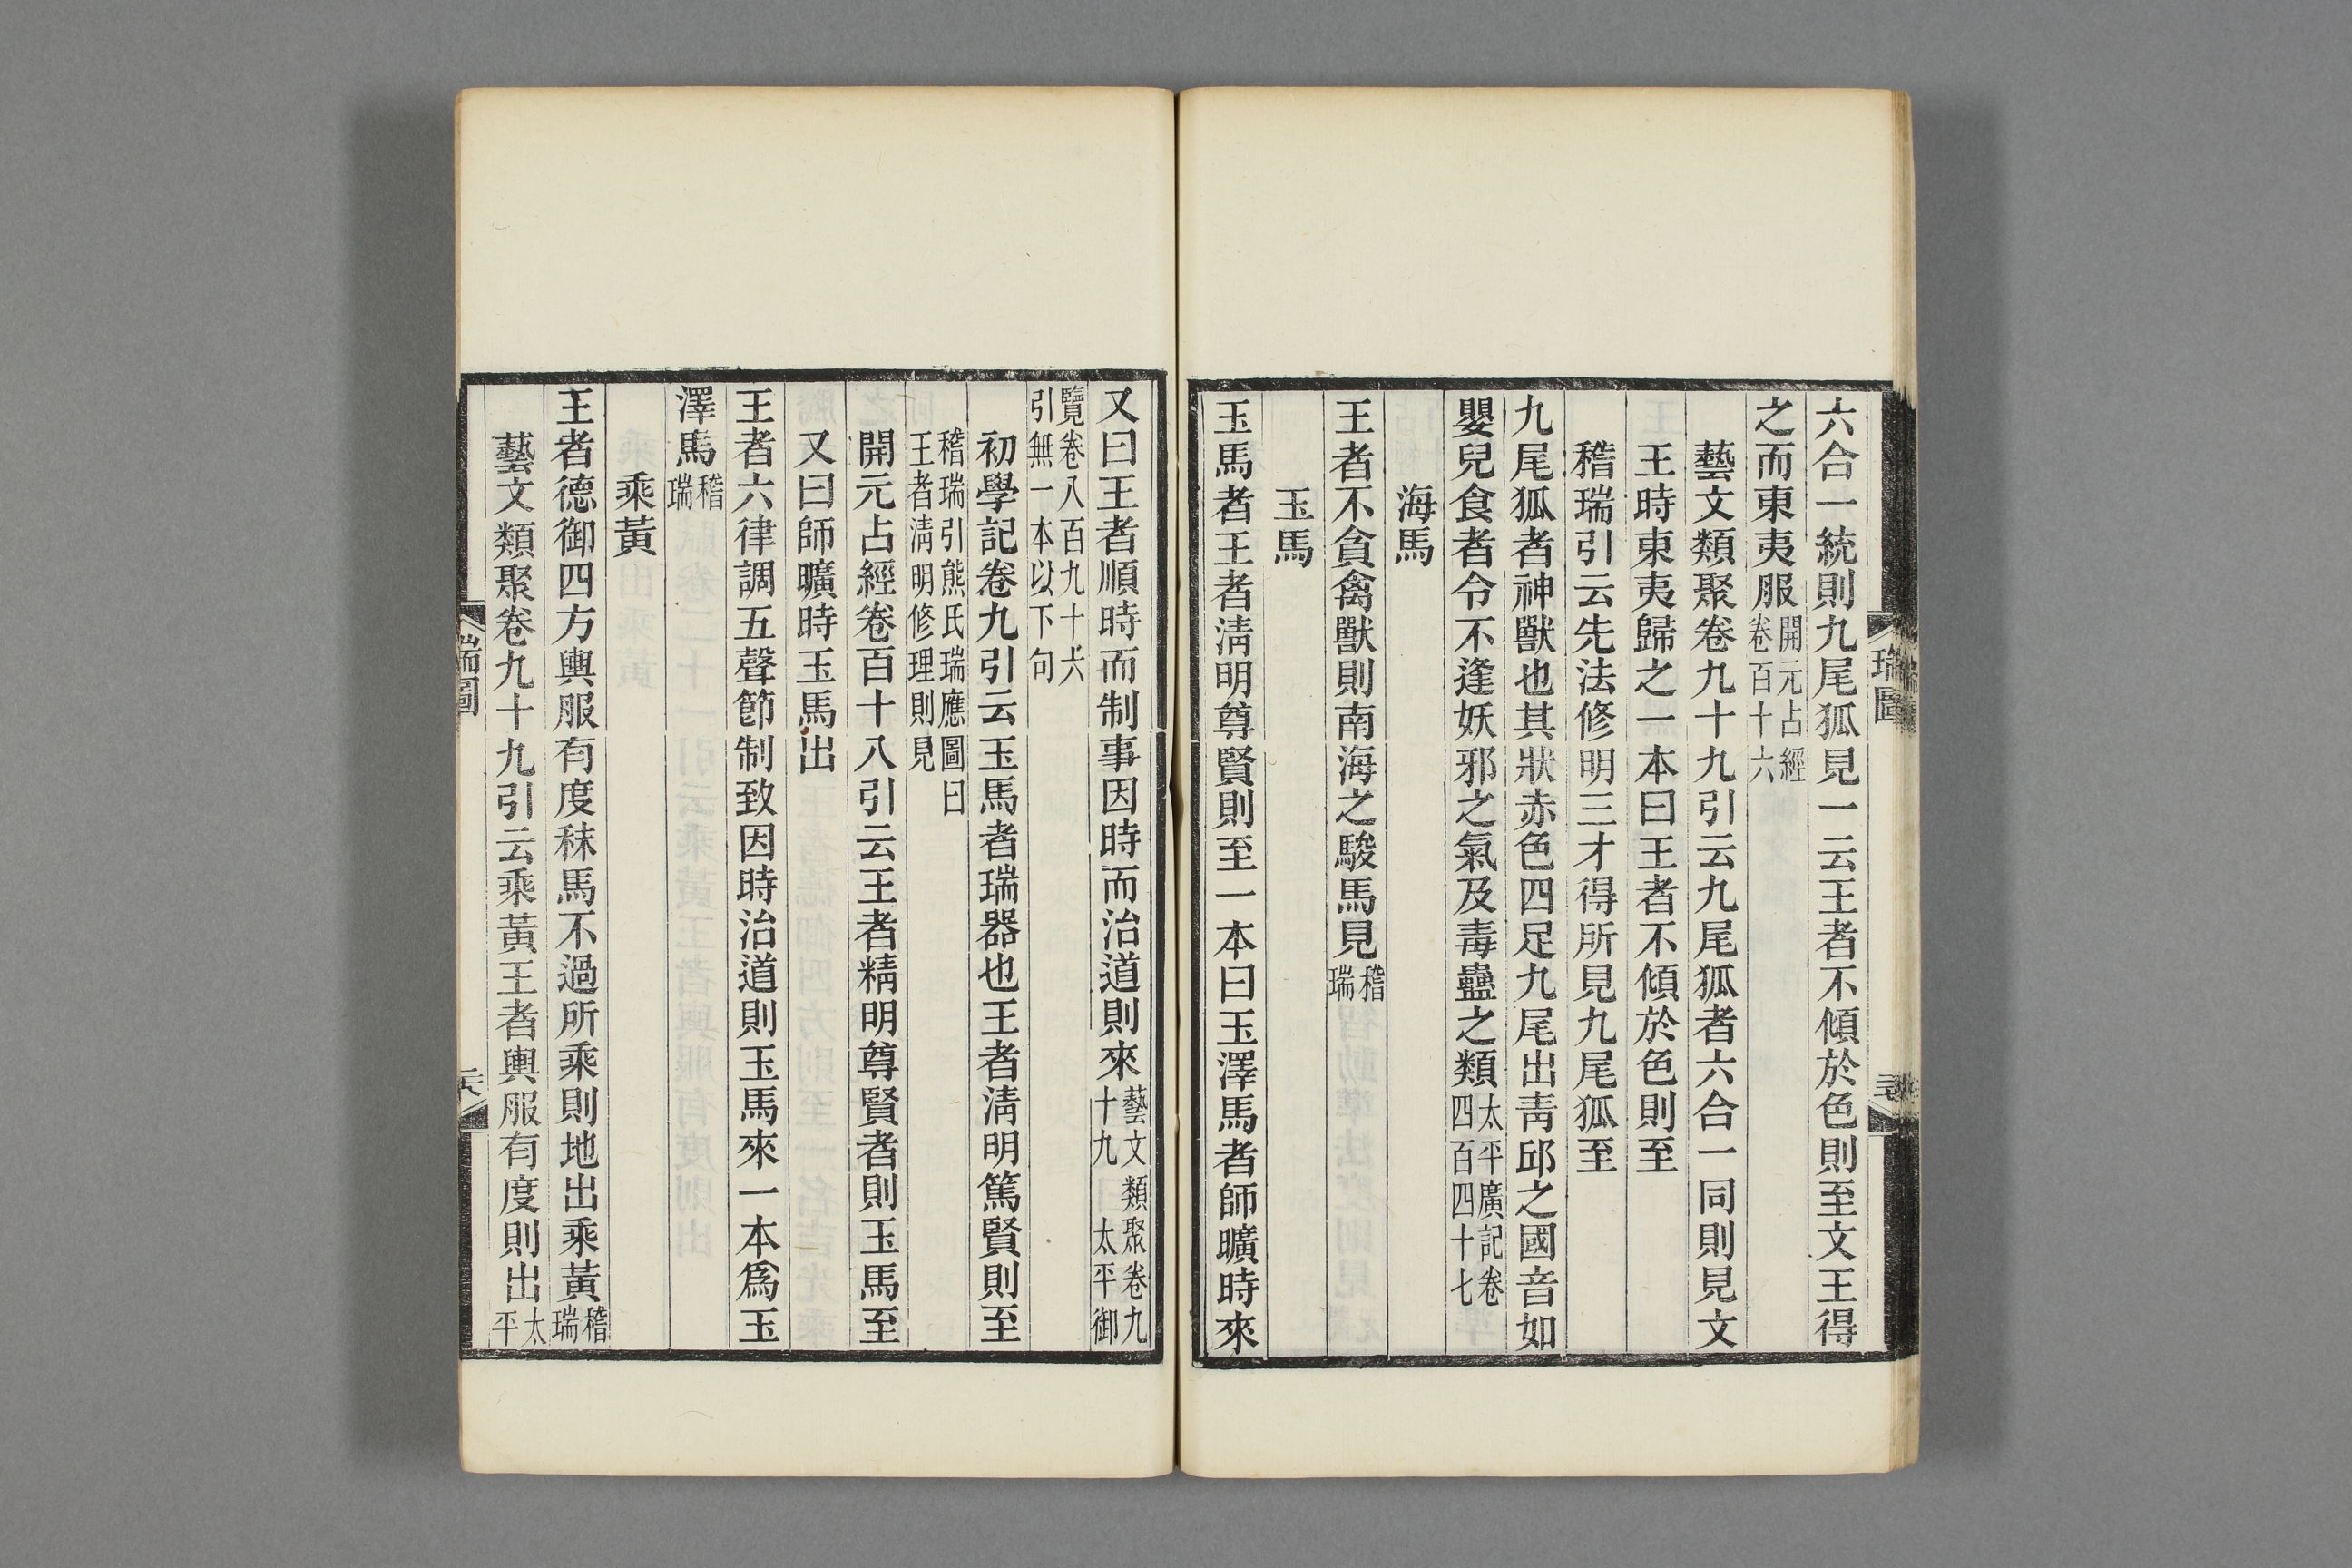 六合一統則九尾狐見一云王者不傾於色則至文王得
之而東夷服開元占經
卷百十六
藝文類聚卷九十九引云九尾狐者六合一同則見文
王時東夷歸之一本曰王者不傾於色則至
稽瑞引云先法修明三才得所見九尾狐至
九尾狐者神獸也其狀赤色四足九尾出靑邱之國音如
嬰兒食者令不逢妖邪之氣及毒蠱之類太平廣記卷
四百四十七
海馬
王者不貪禽獸則南海之駿馬見稽
瑞
玉馬
玉馬者王者淸明尊賢則至一本曰玉澤馬者師曠時來
瑞圖
又曰王者順時而制事因時而治道則來藝文類聚卷九
十九 太平御
覽卷八百九十六
引無一本以下句
初學記卷九引云玉馬者瑞器也王者淸明篤賢則至
稽瑞引熊氏瑞應圖曰
王者淸明修理則見
開元占經卷百十八引云王者精明尊賢者則玉馬至
又曰師曠時玉馬出
王者六律調五聲節制致因時治道則玉馬來一本爲玉
澤馬稽
瑞
乘黃
王者德御四方輿服有度秣馬不過所乘則地出乘黃稽
瑞
藝文類聚卷九十九引云乘黃王者輿服有度則出太
平
瑞圖